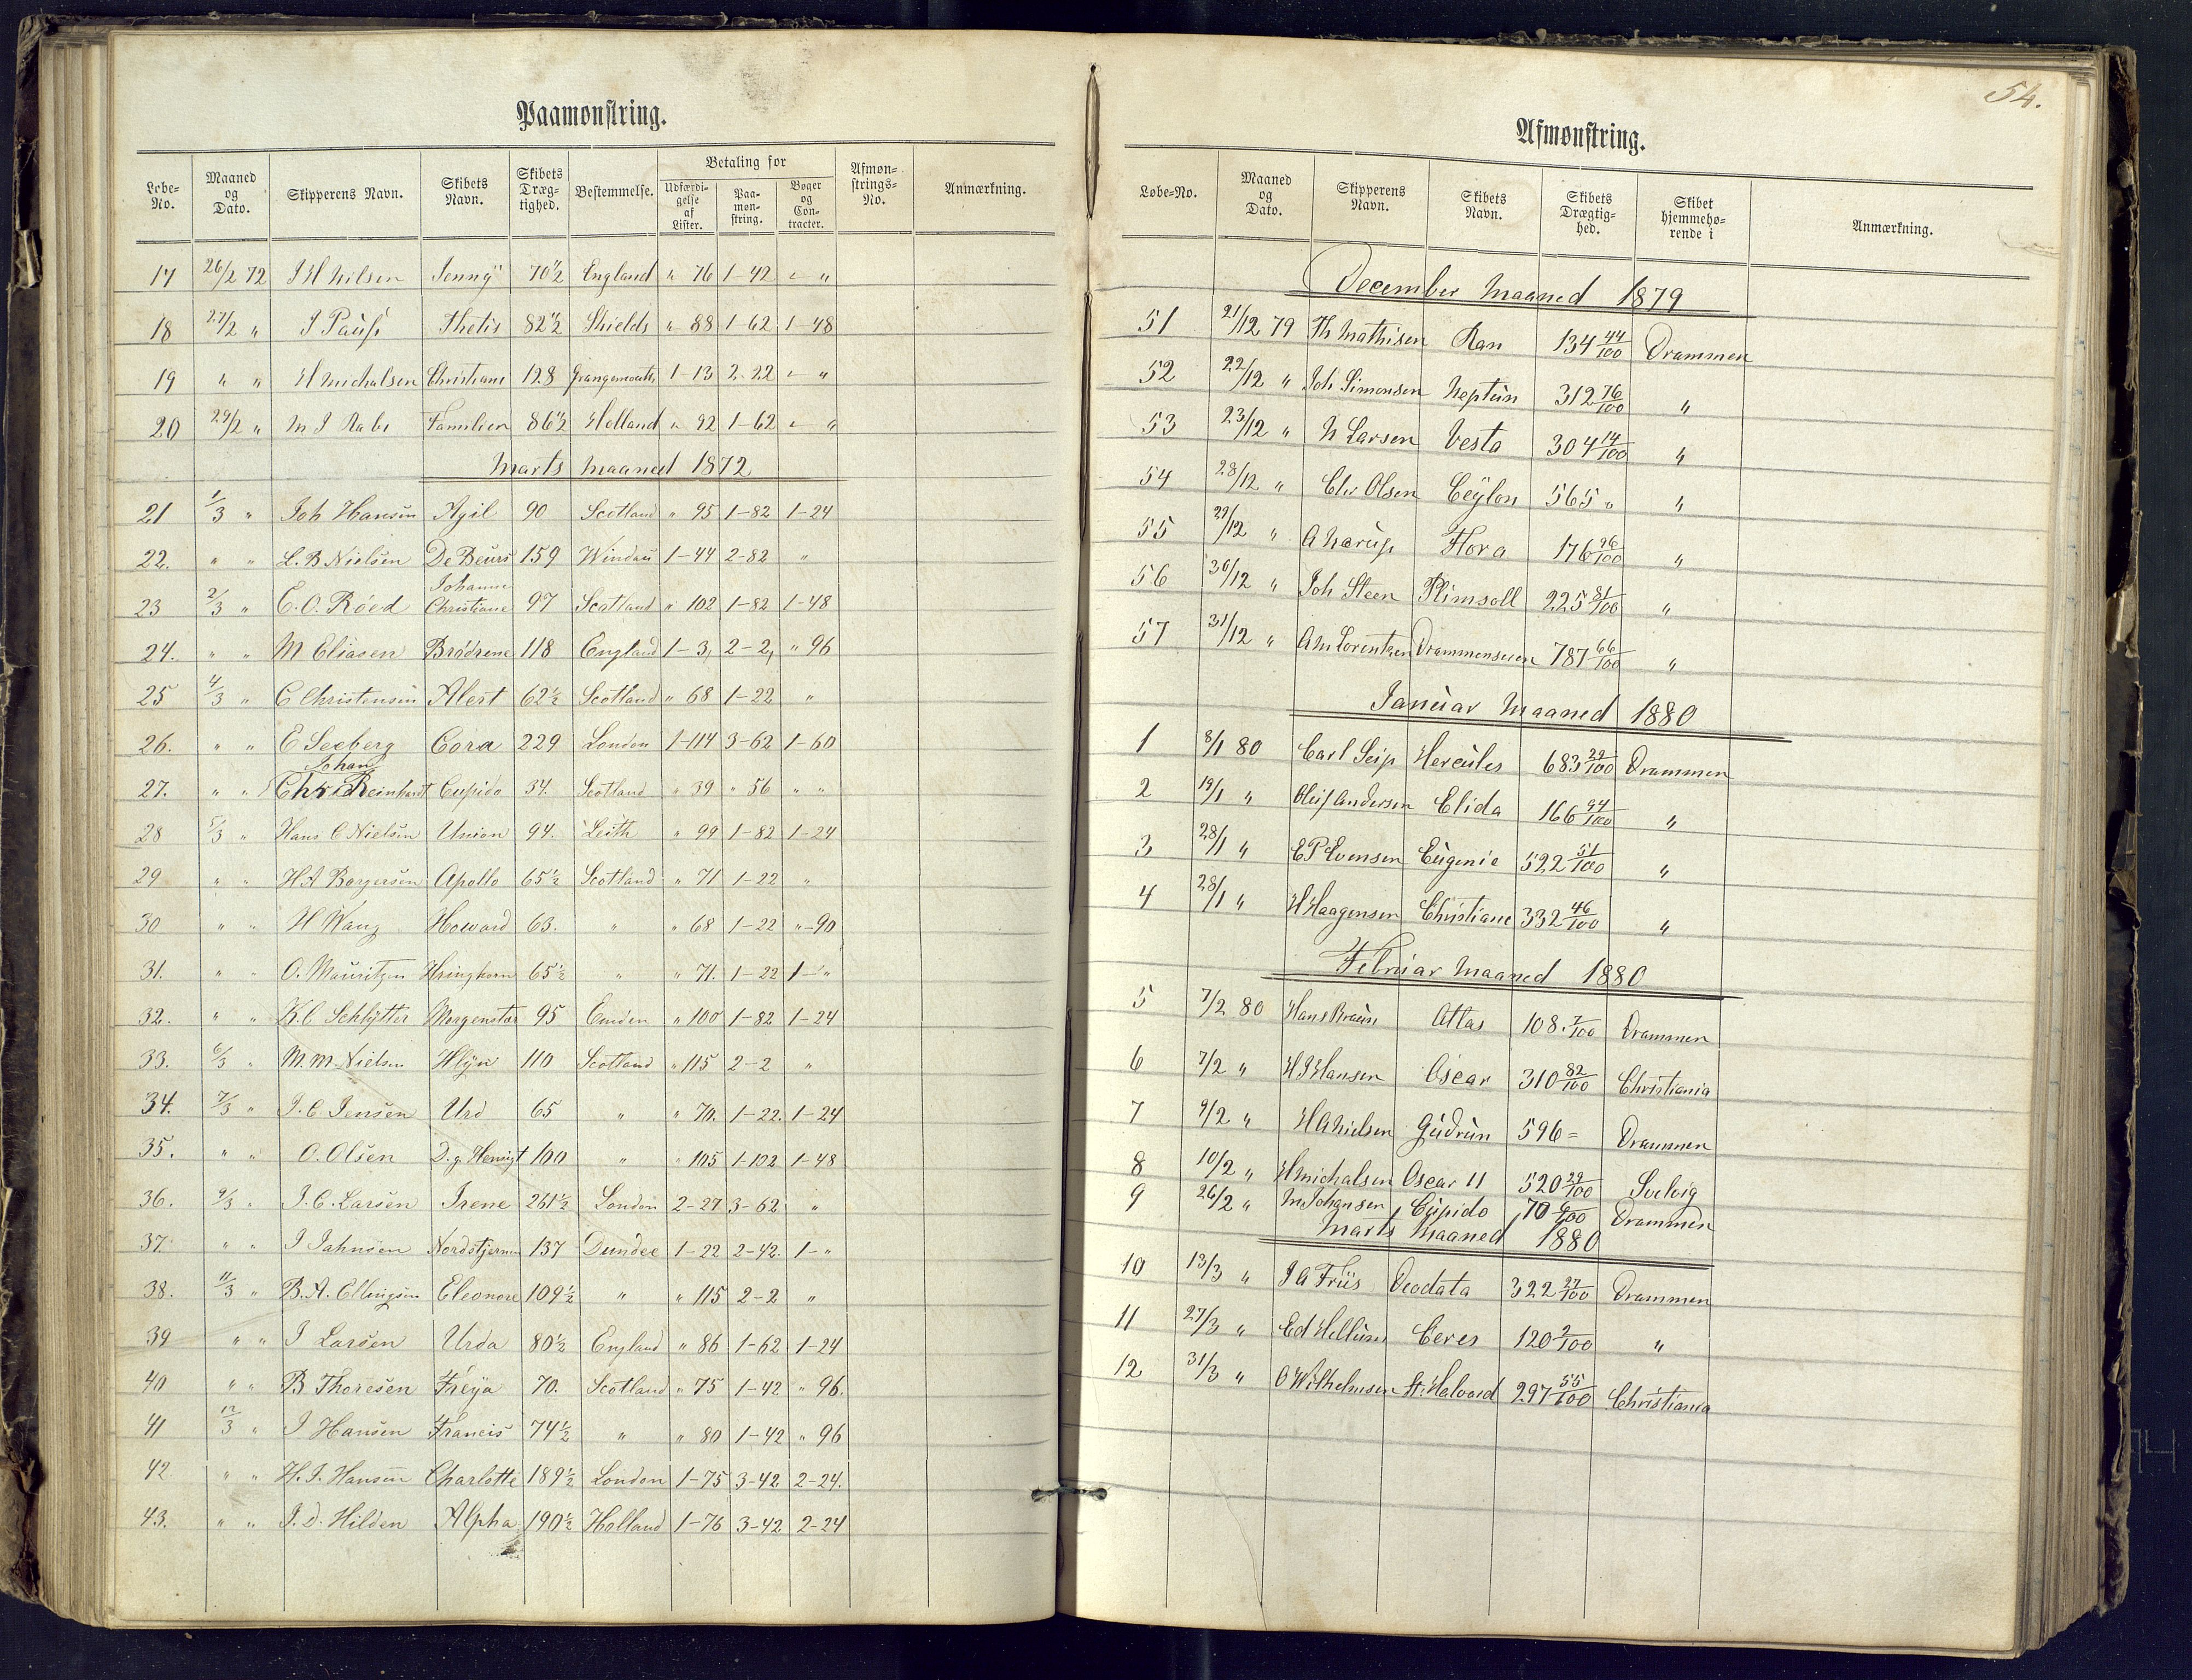 Paamønstring.
Løbe-No. | Maaned og Dato. | Skipperens Navn. | Skibets Navn. | Skibets Drægtighed. | Bestemmelse. | Betaling for Udfærdigelse af Lister. | Paamønstring. | Bøger og Contracter. | Afmønstrings-No. | Anmærkning.
17 26/2 72 J H Nilsen Jenny 70 1/2 England " 76 1-42 " "
18 27/2 " J Pauss Thetis 82 1/2 Shields " 88 1-62 1-48
19 " " H Michalsen Christiane 128 Grangemouth 1-13 2-22 " "
20 29/2 " M J Rabe Familien 86 1/2 Holland " 92 1-62 " "
Marts Maaned 1872
21 1/3 " Joh Hansen Agil 90 Scotland " 95 1-82 1-24
22. " " L. B Nielsen De Beurs 159 Windau 1-44 2-82 "
23 2/3 " C. O. Röed Johanne Christiane 97 Scotland " 102 1-82 1-48
24. " " M Eliasen Brödrene 118 England 1-3, 2-2, " 96
25 4/3 " C Christensen Alert 62 1/2 Scotland " 68 1-22 "
26. " " E Seeberg Cora 229 London 1-114 3-62 1-60
27. " " Johan Chr Reinhardt Cupido 34. Scotland " 39 " 56 " "
28 5/3 " Hans C Nielsen Union 94. Leith " 99 1-82 1-24
29 " " H A Borgersen Apollo 65 1/2 Scotland " 71 1-22 "
30 " " H Wang Howard 63. " " 68 1-22 "-90
31. " " O. Mauritzen Hringhorn 65 1/2 " " 71. 1-22 1-"
32. " " K. C Schlytter Morgenstar 95 Emden " 100 1-82 1-24
33. 6/3 " M. M. Nielsen Hlÿn 110 Scotland " 115 2-2 "
34. 7/3 " J. C. Jensen Urd 65 " " 70. 1-22. 1-24
35. " " O. Olsen D. g. Hensigt 100 " " 105 1-102 1-48
36. 9/3 " J. C. Larsen Irene 261 1/2 London 2-27 3-62 "
37. " " J Jahnsen Nordstjernen 137 Dundee 1-22 2-42. 1-"
38. 11/3 " B. A. Ellingsen Eleonore 109 1/2 " " 115 2-2 "
39 " " J Larsen Urda 80 1/2 England " 86 1-62 1-24
40 " " B Thoresen Freya 70. Scotland " 75 1-42 " 96.
41 12/3 " J Hansen Francis 74 1/2 " " 80 1-42 " 96
42 " " H. J. Hansen Charlotte 189 1/2 London 1-75 3-42 2-24.
43. " " J. D. Hilden Alpha 190 1/2 Holland 1-76 3-42 2-24
54.
Afmønstring.
Løbe-No. | Maaned og Dato. | Skipperens Navn. | Skibets Navn. | Skibets Drægtighed. | Skibet hjemmehørende i | Anmærkning.
December Maaned 1879
51 21/12 79 Th Mathisen Ran 134 44/100 Drammen
52 22/12 " Joh Simensen Neptun 312 76/100 "
53 23/12 " N Larsen Vesta 304 14/100 "
54 28/12 " Chr Olsen Ceylon 565 " "
55 29/12 " A Narup Flora 176 96/100 "
56 30/12 " Joh Steen Plimsoll 225 81/100 "
57 31/12 " A M Lorentzen Drammenseren 787 66/100 "
Januar Maaned 1880
1 8/1 80 Carl Seip Hercules 683 29/100 Drammen
2 19/1 " Oluf Andersen Elida 166 94/100 "
3 28/1 " E P Evensen Eugenie 522 51/100 "
4 28/1 " H Haagensen Christiane 332 46/100 "
Februar Maaned 1880
5 7/2 80 Hans Braün Atlas 108. 7/100 Drammen
6 7/2 " H J Hansen Oscar 310 82/100 Christiania
7 9/2 " H A Nielsen Gudrun 596 = Drammen
8 10/2 " H Michalsen Oscar II 520 29/100 Svelvig
9 26/2 " M Johansen Cupido 70 6/100 Drammen
Marts Maaned 1880
10 13/3 " J A Friis Deodata 322 27/100 Drammen
11 27/3 " Ed Hellum Ceres 120 2/100 "
12 31/3 " O Wilhelmsen St. Halvard 297 55/100 Christiania